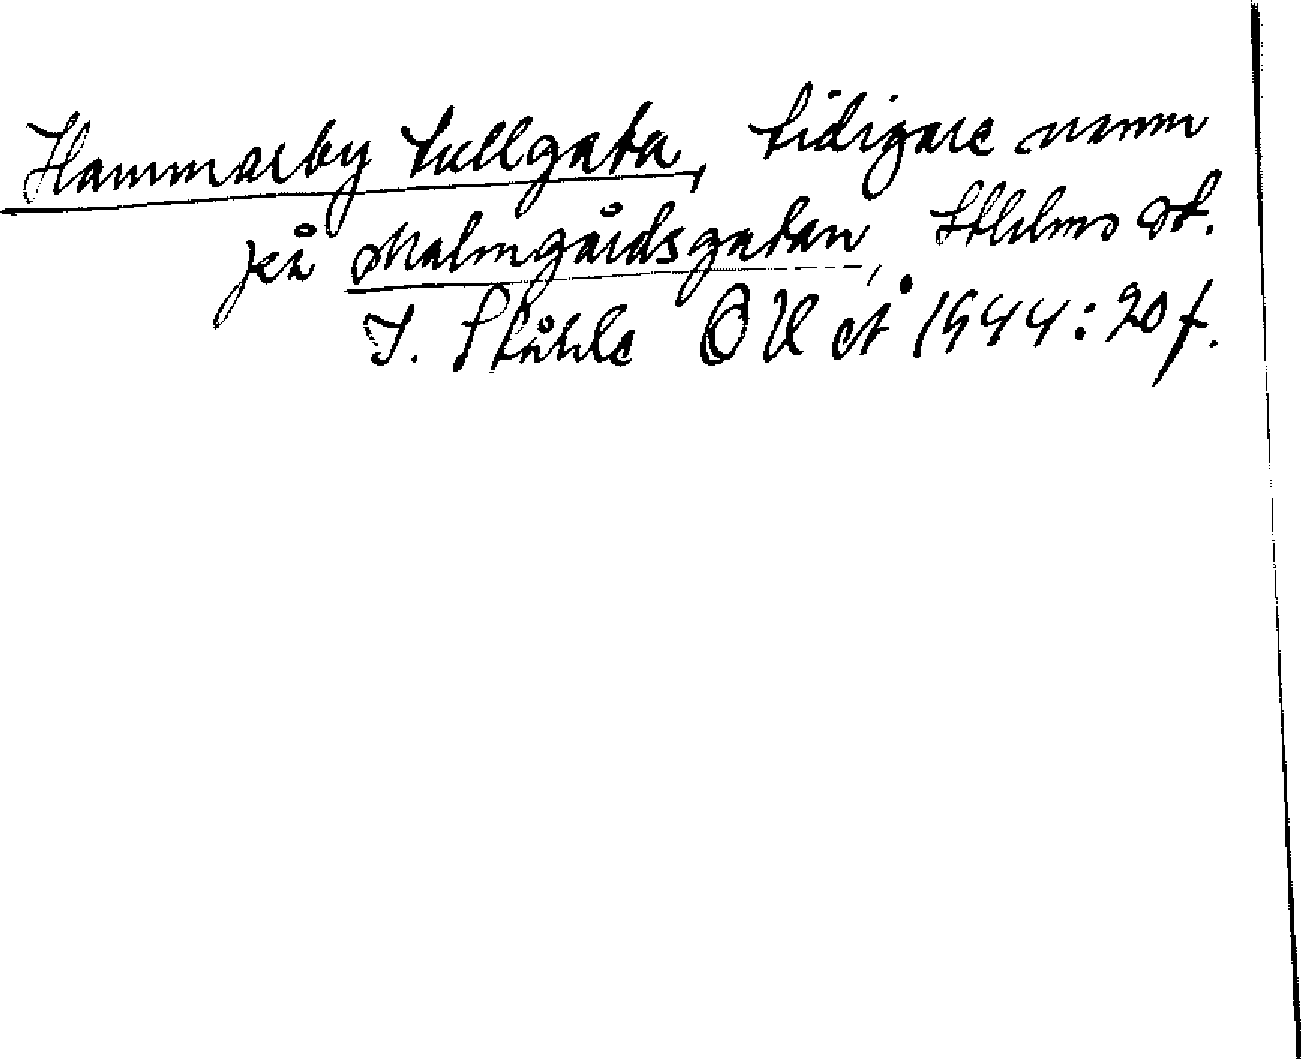 Hammarby tullgata, tidigare namn
på Malmgårdsgatan, Sthlms st.
I. Ståhle OU Å 1944: 20 f.